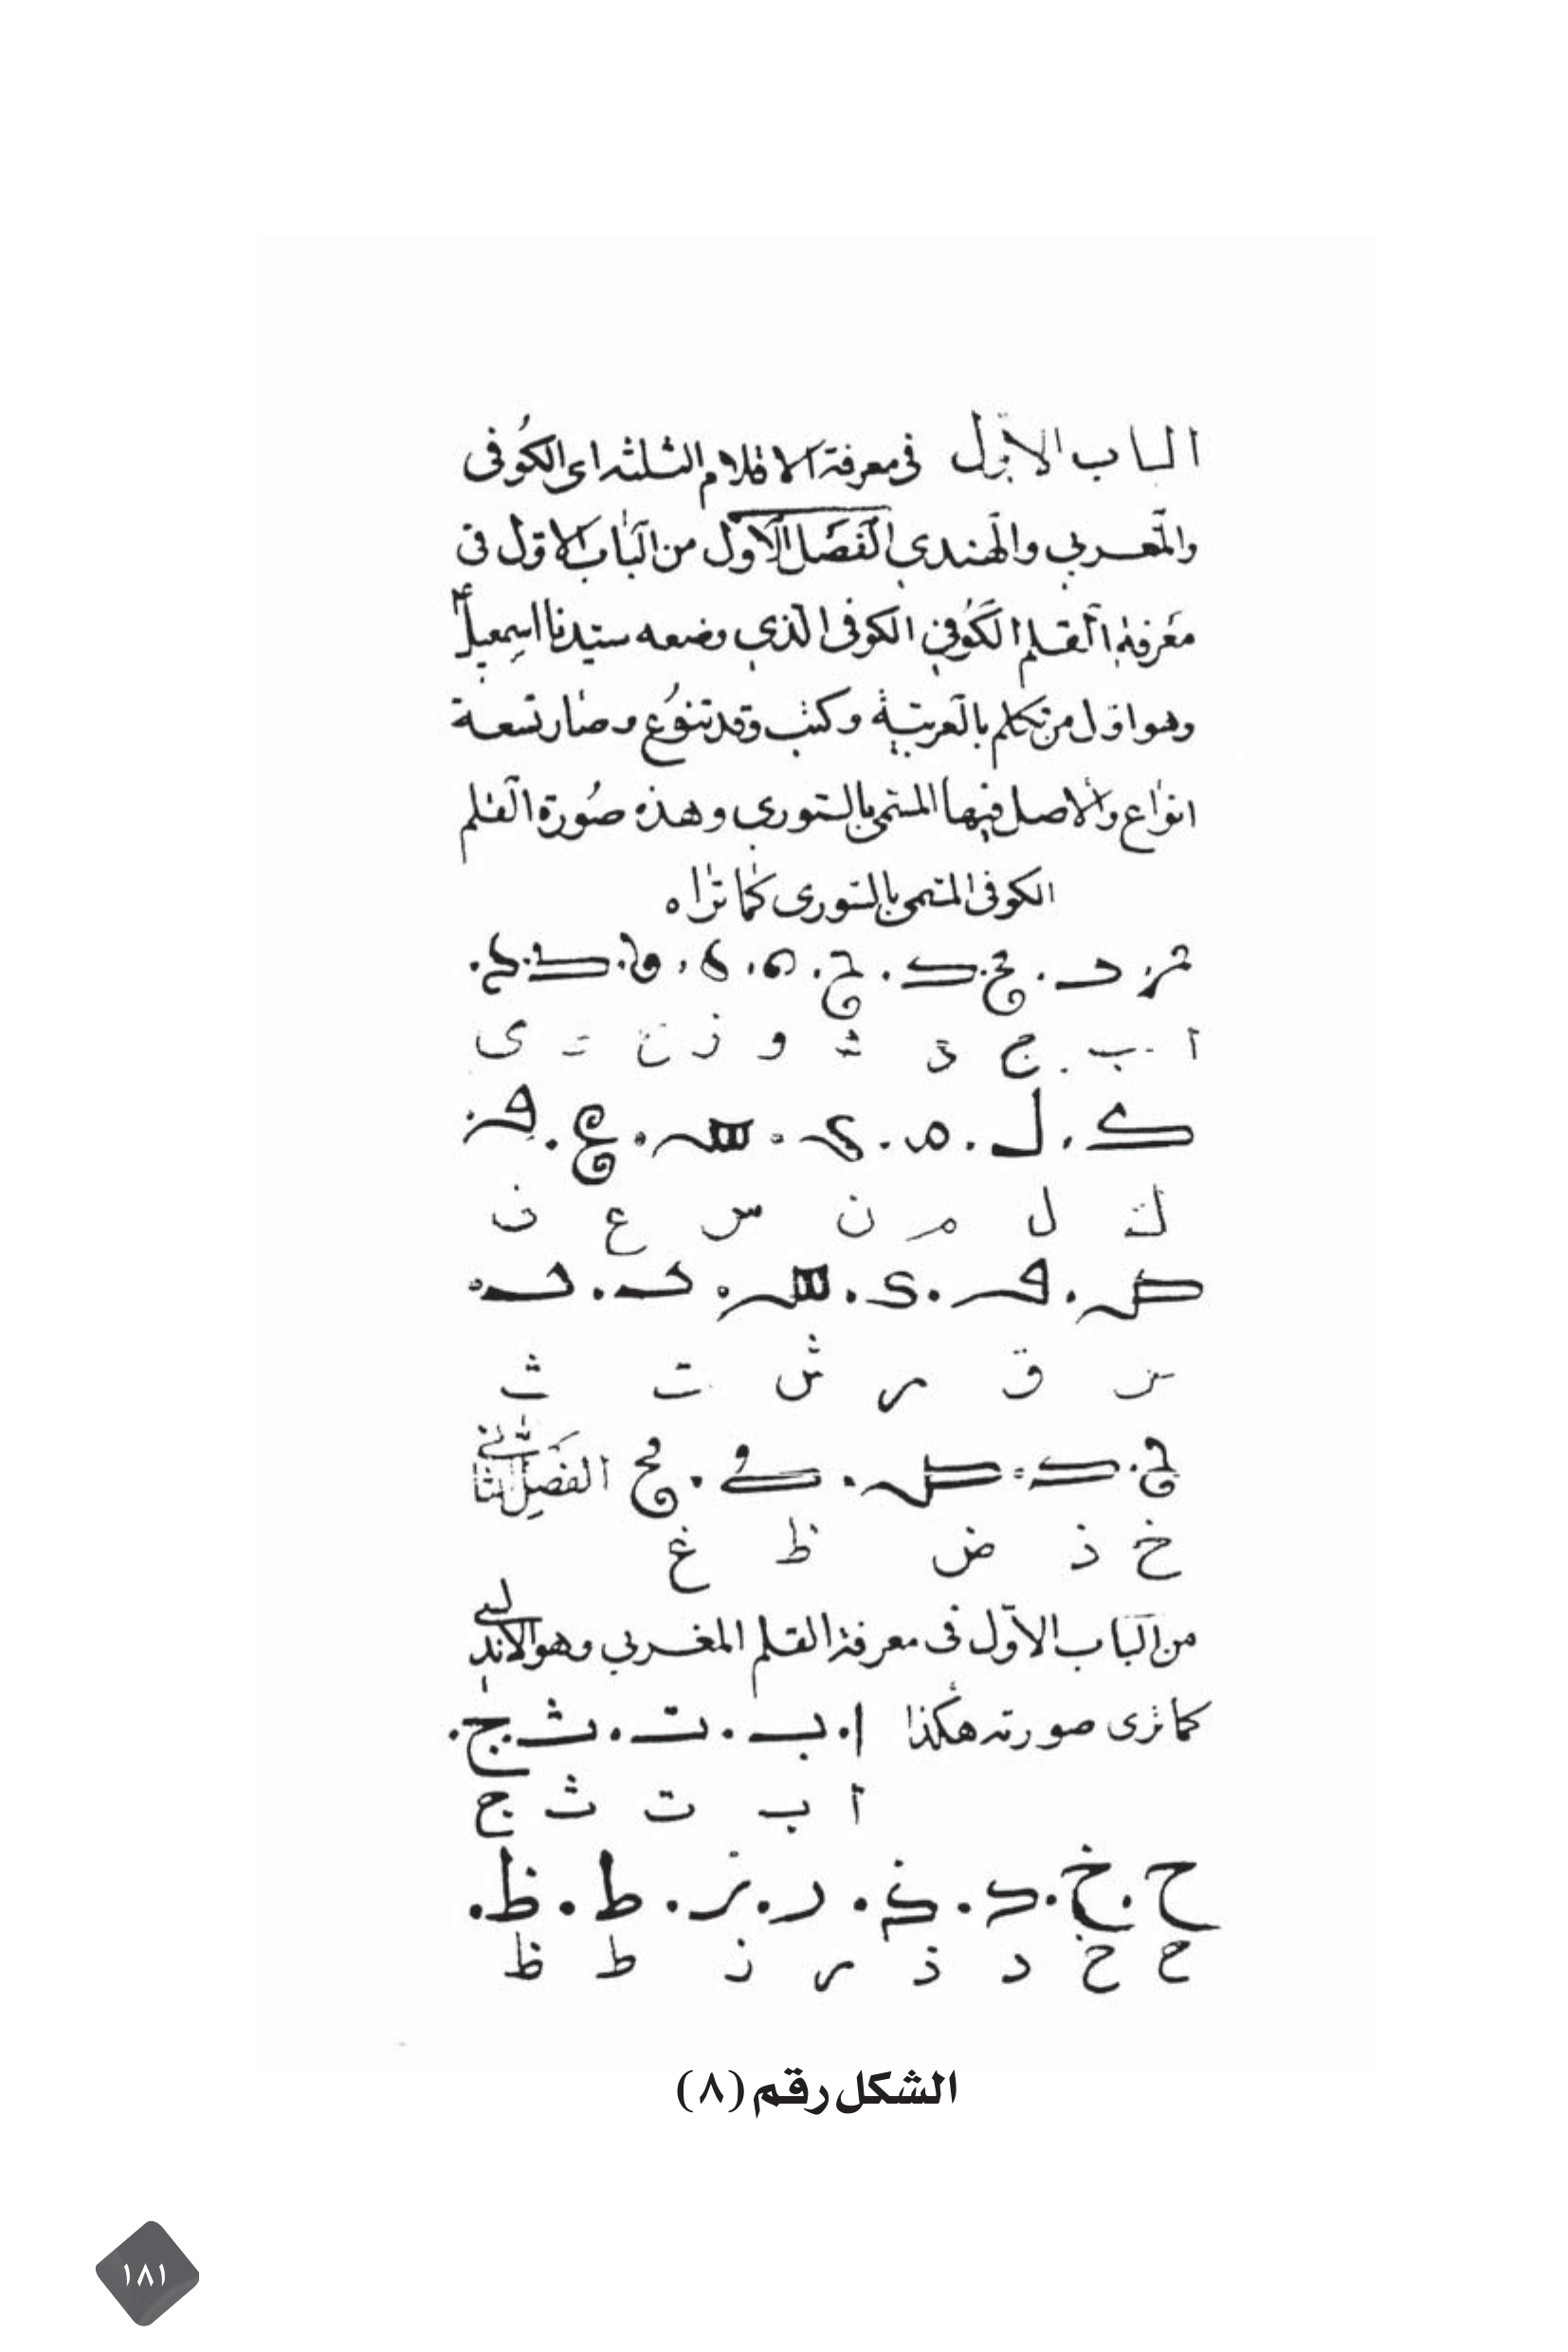 الباب الاول في معرفة الاقلام الثلثه اى الكوفى
والمغربي والهندي الفصل الاول من الباب الاول فى
معرفة القلم الكوفي الكوفى الذي وضعه سيدنا اسمعيل
وهو اول من تكلم بالعربية وكتب وقد تنوع وصار تسعة
انواع والاصل فيها المسمى بالسوري وهذه صورة القلم
الكوفى المسمى بالسورى كما تراه
ا ب ج د ه و ز ح ى
ك ل م ن س ع ف
ص ق ر ش ت ث
الفصل الثانى
خ ذ ض ظ غ
من الباب الاول فى معرفة القلم المغربي وهو الاندلسي
كما ترى صورته هكذا ا . ب . ت . ث . ج .
ا ب ت ث ج
ح . خ . د . ذ . ر . ز . ط . ظ .
ح خ د ذ ر ز ط ظ
الشكل رقم (٨)
١٨١